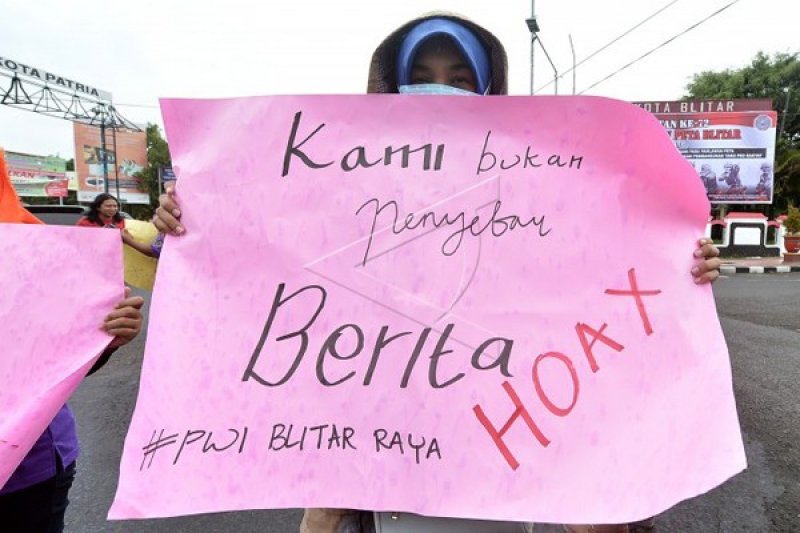 KOTA PATRIA
KOTA BLITAR
PETA BLITAR
Kami bukan
Penyebar
Berita
HOAX
#PWI BLITAR RAYA